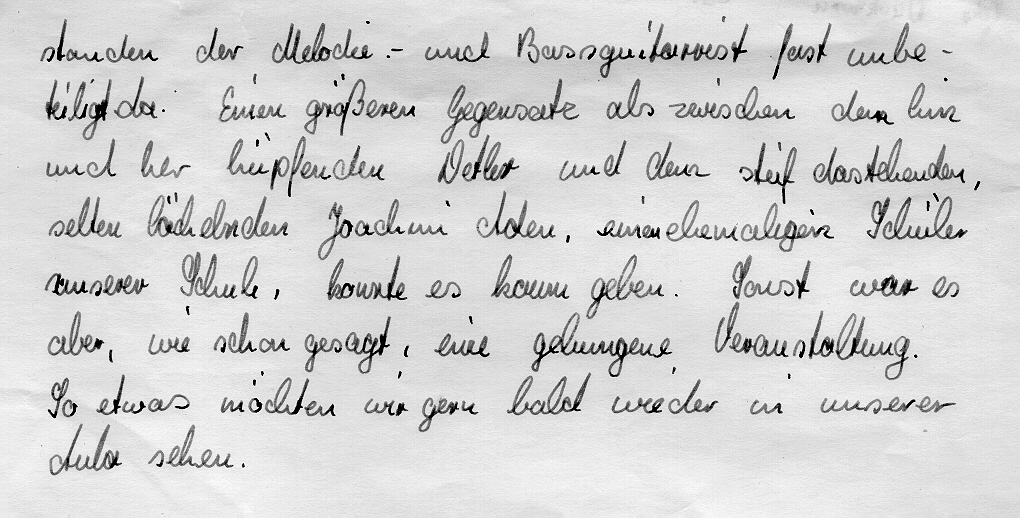 standen der Melodie.- und Bassguitarrist fast unbe-
teiligt da. Einen größeren Gegensatz als zwischen dem hin
und her hüpfenden Detlev und dem steif dastehenden,
selten lächelnden Joachim Aden, einem ehemaligem Schüler
unserer Schule, konnte es kaum geben. Sonst war es
aber, wie schon gesagt, eine gelungene Veranstaltung.
So etwas möchten wir gern bald wieder in unserer
Aula sehen.